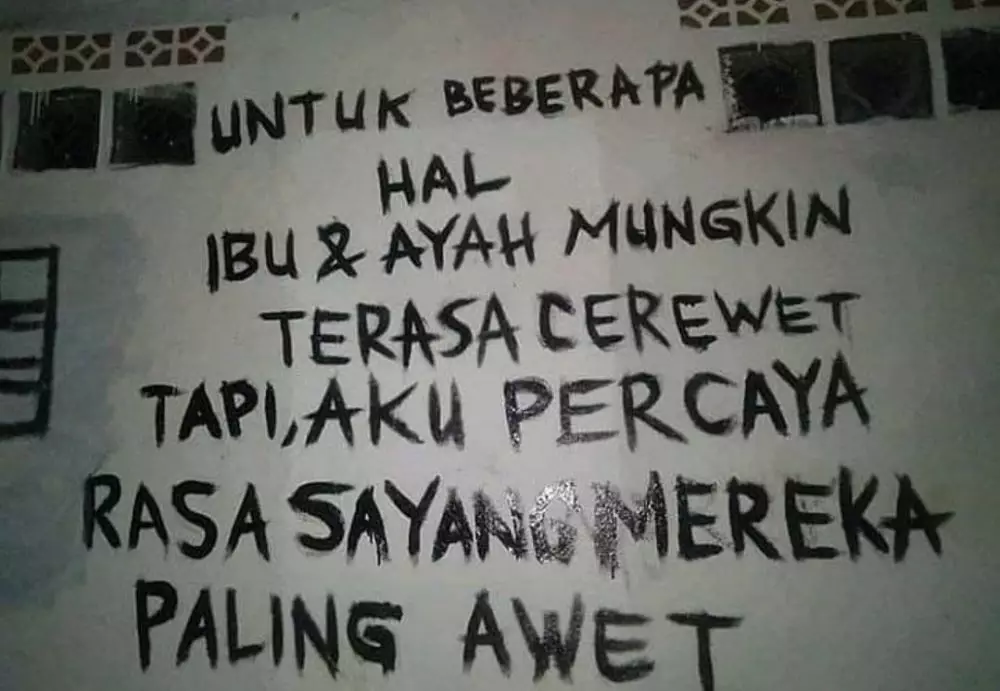 UNTUK BEBERAPA
HAL
IBU & AYAH MUNGKIN
TERASA CEREWET
TAPI, AKU PERCAYA
RASA SAYANG MEREKA
PALING AWET